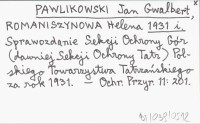 PAWLIKOWSKI Jan Gwalbert,
ROMANISZYNOWA Helena 1931 i.
Sprawozdanie Sekcji Ochrony Gór
(dawniej Sekcji Ochrony Tatr) Pol-
skiego Towarzystwa Tatrzańskiego
za rok 1931. — Ochr. Przyr. 11: 201.